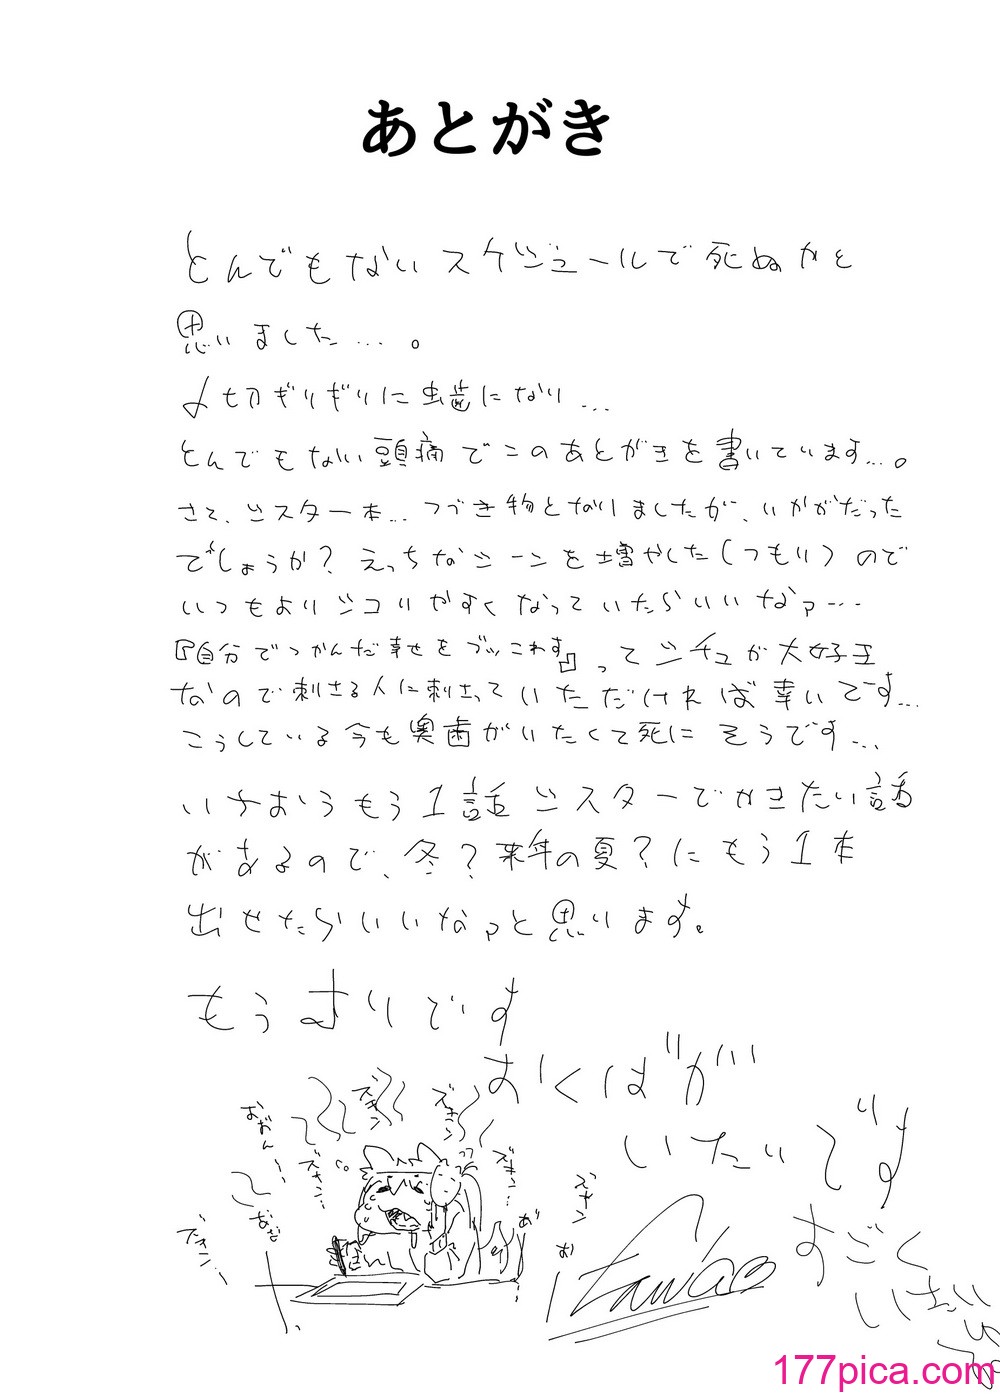 あとがき
とんでもないスケジュールで死ぬかと
思いました…。
〆切ぎりぎりに虫歯になり…
とんでもない頭痛でこのあとがきを書いています…。
さて、シスター本…つづき物となりましたが、いかがだった
でしょうか？えっちなシーンを増やした（つもり）ので
いつもよりシコりやすくなっていたらいいなァ…
『自分でつかんだ幸せをブッこわす』ってシチュが大好き
なので刺さる人に刺さっていただければ幸いです…
こうしている今も奥歯がいたくて死にそうです…
いちおうもう1話シスターでかきたい話
があるので、冬？来年の夏？にもう1本
出せたらいいなァと思います。
もうムリです
おくばが
いたいです
すごく
いたい
ズキン
ズキン
ズキン…
ズキン…
ズキン
ズキン…
おおん…
177pica.com